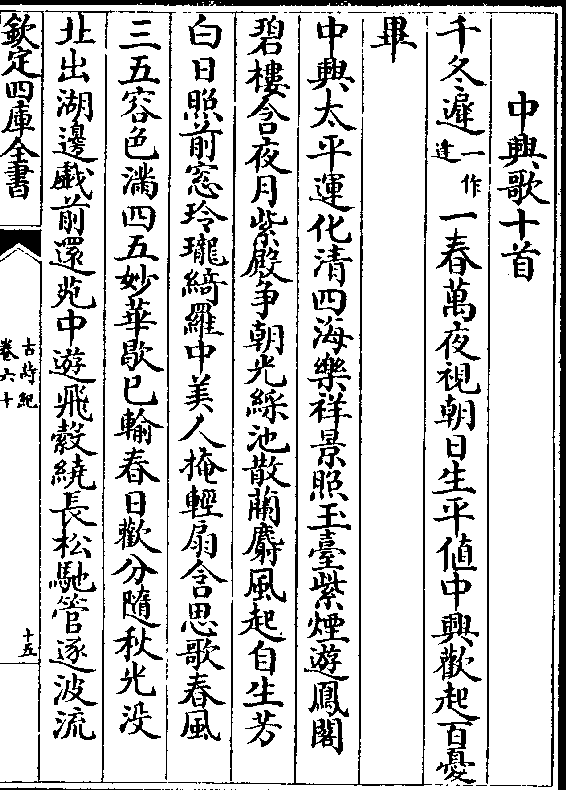 中興歌十首
千冬遲一作逹一春萬夜視朝日生平值中興歡起百憂
畢
中興太平運化清四海樂祥景照玉臺紫煙遊鳳閣
碧樓含夜月紫殿争朝光綵池散蘭麝風起自生芳
白日照前窓玲瓏綺羅中美人掩輕扇含思歌春風
三五容色滿四五妙華歇已輸春日歡分隨秋光没
北出湖邊戲前還苑中遊飛縠繞長松馳管逐波流
欽定四庫全書
古詩紀
卷六十
十五